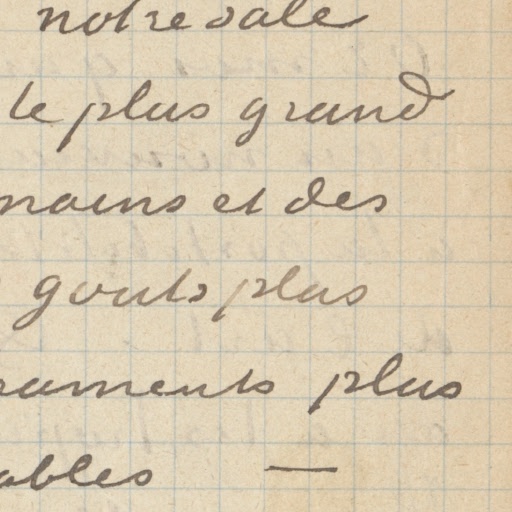 notre sale
le plus grand
mains et des
gouts plus
raments plus
ables —